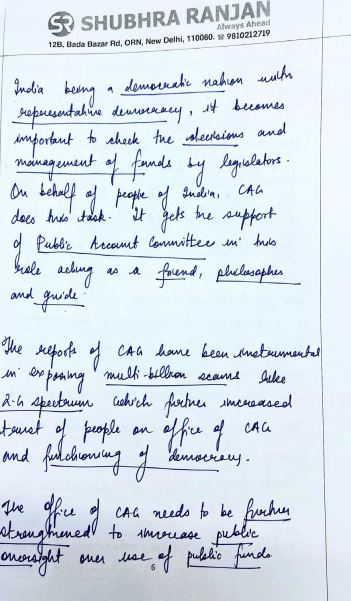 SR SHUBHRA RANJAN
Always Ahead
12B, Bada Bazar Rd, ORN, New Delhi, 110060. ☎ 9810212719
India being a democratic nation with
representative democracy, it becomes
important to check the decisions and
management of funds by legislators.
On behalf of people of India, CAG
does this task. It gets the support
of Public Account Committee in this
role acting as a friend, philosopher
and guide.
The reports of CAG have been instrumental
in exposing multi-billion scams like
2-G spectrum which further increased
trust of people on office of CAG
and functioning of democracy.
The office of CAG needs to be further
strengthened to increase public
oversight over use of public funds
6